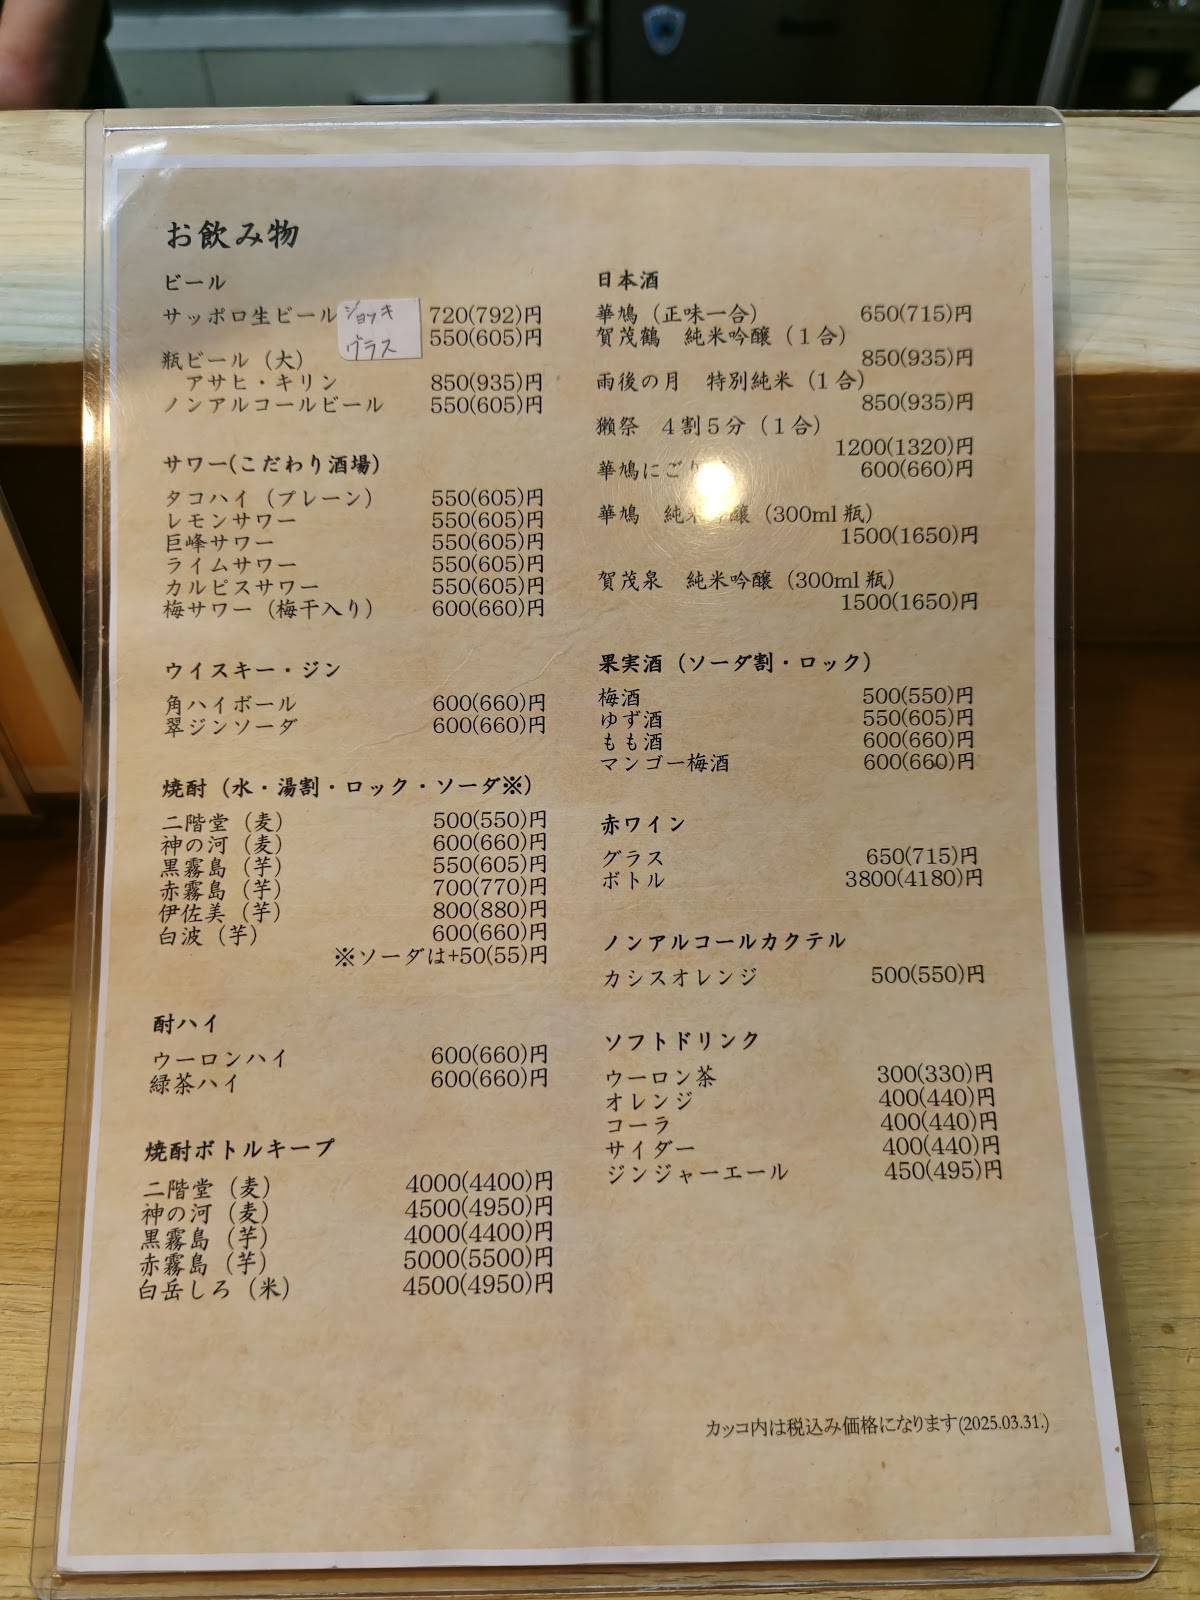 お飲み物
ビール
サッポロ生ビール ジョッキ 720(792)円
グラス 550(605)円
瓶ビール（大）
アサヒ・キリン 850(935)円
ノンアルコールビール 550(605)円
サワー(こだわり酒場)
タコハイ（プレーン） 550(605)円
レモンサワー 550(605)円
巨峰サワー 550(605)円
ライムサワー 550(605)円
カルピスサワー 550(605)円
梅サワー（梅干入り） 600(660)円
ウイスキー・ジン
角ハイボール 600(660)円
翠ジンソーダ 600(660)円
焼酎（水・湯割・ロック・ソーダ※）
二階堂（麦） 500(550)円
神の河（麦） 600(660)円
黒霧島（芋） 550(605)円
赤霧島（芋） 700(770)円
伊佐美（芋） 800(880)円
白波（芋） 600(660)円
※ソーダは+50(55)円
酎ハイ
ウーロンハイ 600(660)円
緑茶ハイ 600(660)円
焼酎ボトルキープ
二階堂（麦） 4000(4400)円
神の河（麦） 4500(4950)円
黒霧島（芋） 4000(4400)円
赤霧島（芋） 5000(5500)円
白岳しろ（米） 4500(4950)円
日本酒
華鳩（正味一合） 650(715)円
賀茂鶴　純米吟醸（１合）
850(935)円
雨後の月　特別純米（１合）
850(935)円
獺祭　４割５分（１合）
1200(1320)円
華鳩にごり 600(660)円
華鳩　純米吟醸（300ml瓶）
1500(1650)円
賀茂泉　純米吟醸（300ml瓶）
1500(1650)円
果実酒（ソーダ割・ロック）
梅酒 500(550)円
ゆず酒 550(605)円
もも酒 600(660)円
マンゴー梅酒 600(660)円
赤ワイン
グラス 650(715)円
ボトル 3800(4180)円
ノンアルコールカクテル
カシスオレンジ 500(550)円
ソフトドリンク
ウーロン茶 300(330)円
オレンジ 400(440)円
コーラ 400(440)円
サイダー 400(440)円
ジンジャーエール 450(495)円
カッコ内は税込み価格になります(2025.03.31.)